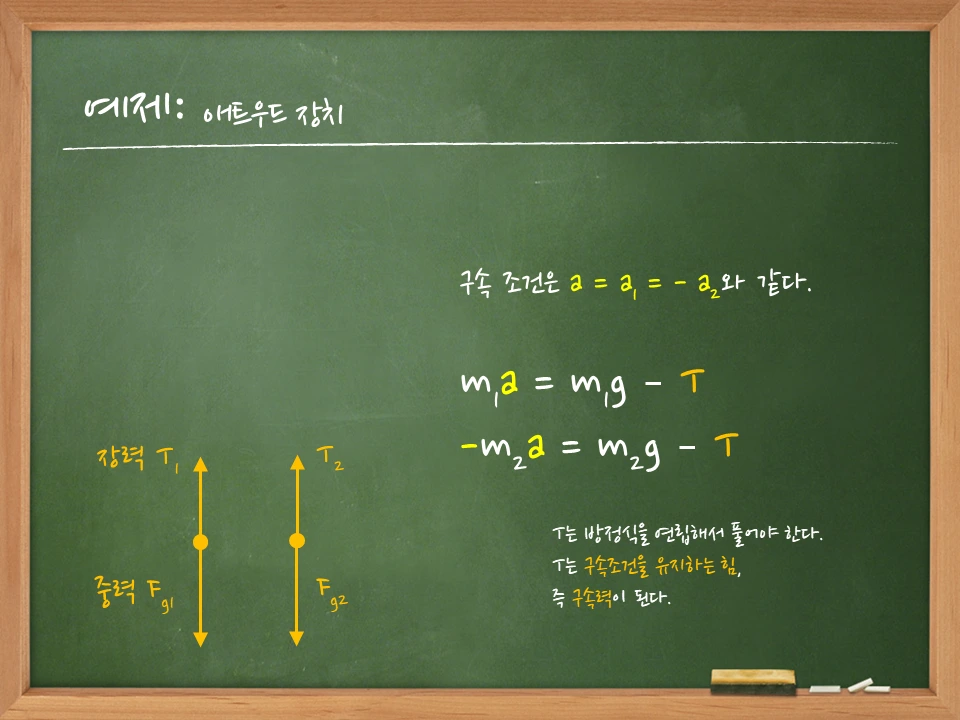 예제: 애트우드 장치
구속 조건은 a = a₁ = - a₂와 같다.
m₁a = m₁g - T
-m₂a = m₂g - T
장력 T₁
T₂
중력 Fg1
Fg2
T는 방정식을 연립해서 풀어야 한다.
T는 구속조건을 유지하는 힘,
즉 구속력이 된다.